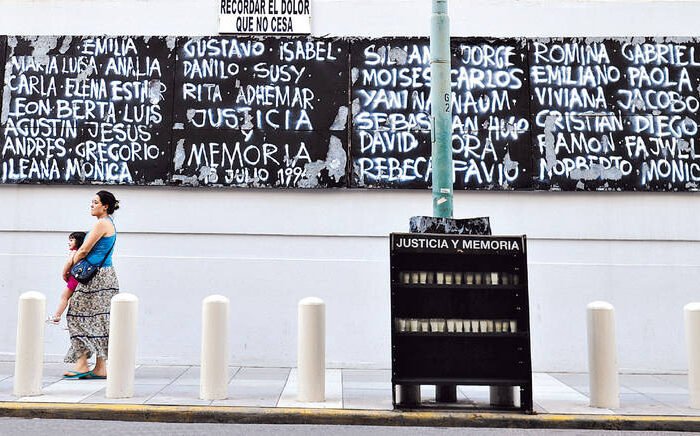 RECORDAR EL DOLOR
QUE NO CESA
EMILIA
MARIA LUISA ANALIA
CARLA ELENA ESTHER
LEON BERTA LUIS
AGUSTIN JESUS
ANDRES GREGORIO
ILEANA MONICA
GUSTAVO ISABEL
DANILO SUSY
RITA ADHEMAR
JUSTICIA
Y
MEMORIA
18 JULIO 1994
JORGE
MOISES CARLOS
YANINA NAUM
HUGO
DAVID
REBECA FAVIO
ROMINA GABRIEL
EMILIANO PAOLA
VIVIANA JACOBO
CRISTIAN DIEGO
RAMON
NORBERTO MONICA
JUSTICIA Y MEMORIA